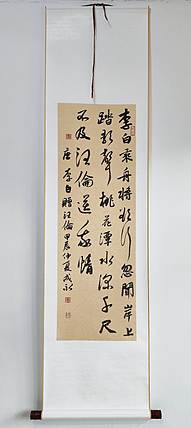 李白乘舟将欲行忽闻岸上
踏歌聲桃花潭水深千尺
不及汪倫送我情
唐李白贈汪倫甲辰仲夏成永